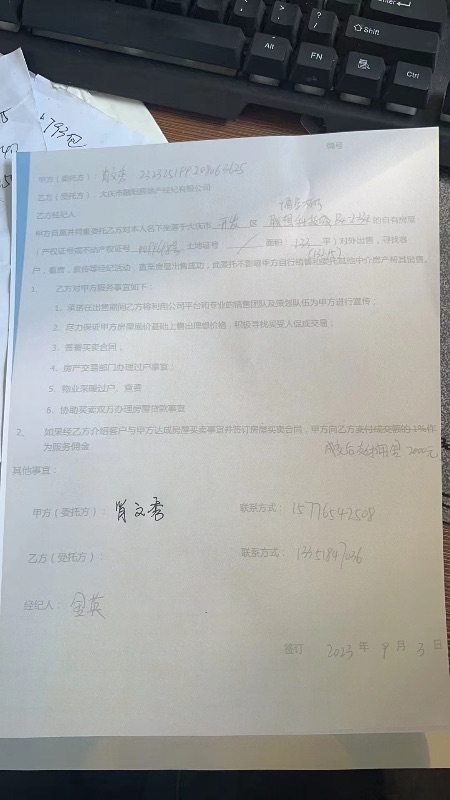 编号
甲方（委托方）：肖文秀
乙方（受托方）：大庆市 房地产经纪有限公司
乙方经纪人：
甲方自愿并郑重委托乙方对本人名下坐落于大庆市 开发 区 的自有房屋
（产权证号或不动产权证号 土地证号： / 面积：133 平）对外出售，寻找客
户，看房，宣传等经纪活动，直至房屋出售成功，此委托不影响甲方自行销售和委托其他中介房产将其出售。
1、 乙方对甲方服务事宜如下：
1、承诺在出售期间乙方将利用公司平台和专业的销售团队及策划队伍为甲方进行宣传；
2、尽力保证甲方房屋底价基础上售出理想价格，积极寻找买受人促成交易；
3、签署买卖合同；
4、房产交易部门办理过户事宜；
5、物业采暖过户、查费
6、协助买卖双方办理房屋贷款事宜
2、 如果经乙方介绍客户与甲方达成房屋买卖事宜并签订房屋买卖合同，甲方向乙方支付成交额的 1%作
为服务佣金 成交后支付佣金 2000元
其他事宜：
甲方（委托方）： 肖文秀 联系方式： 15776542508
乙方（受托方）： 联系方式： 13351847036
经纪人： 金英
签订 2023 年 9 月 3 日